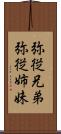 弥従兄弟
弥従姉妹